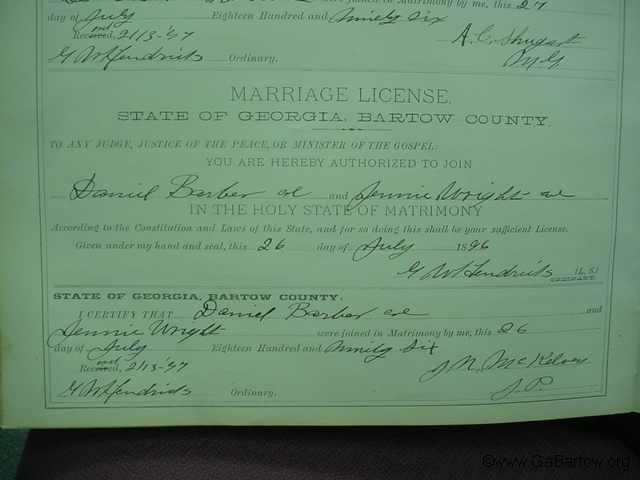 were joined in Matrimony by me, this 27
day of July Eighteen Hundred and Ninety Six
Received, 2/13-'97 A. C. Shugart
G W Hendricks Ordinary. M G
MARRIAGE LICENSE.
STATE OF GEORGIA, BARTOW COUNTY.
TO ANY JUDGE, JUSTICE OF THE PEACE, OR MINISTER OF THE GOSPEL:
YOU ARE HEREBY AUTHORIZED TO JOIN
Daniel Barber col and Jennie Wright col
IN THE HOLY STATE OF MATRIMONY
According to the Constitution and Laws of this State, and for so doing this shall be your sufficient License.
Given under my hand and seal, this 26 day of July 1896
G W Hendricks (L. S.)
ORDINARY.
STATE OF GEORGIA, BARTOW COUNTY.
I CERTIFY THAT Daniel Barber col and
Jennie Wright were joined in Matrimony by me, this 26
day of July Eighteen Hundred and Ninety Six
Received, 2/13-'97 J. N. McKelvey
G W Hendricks Ordinary. J. P.
©www.GaBartow.org